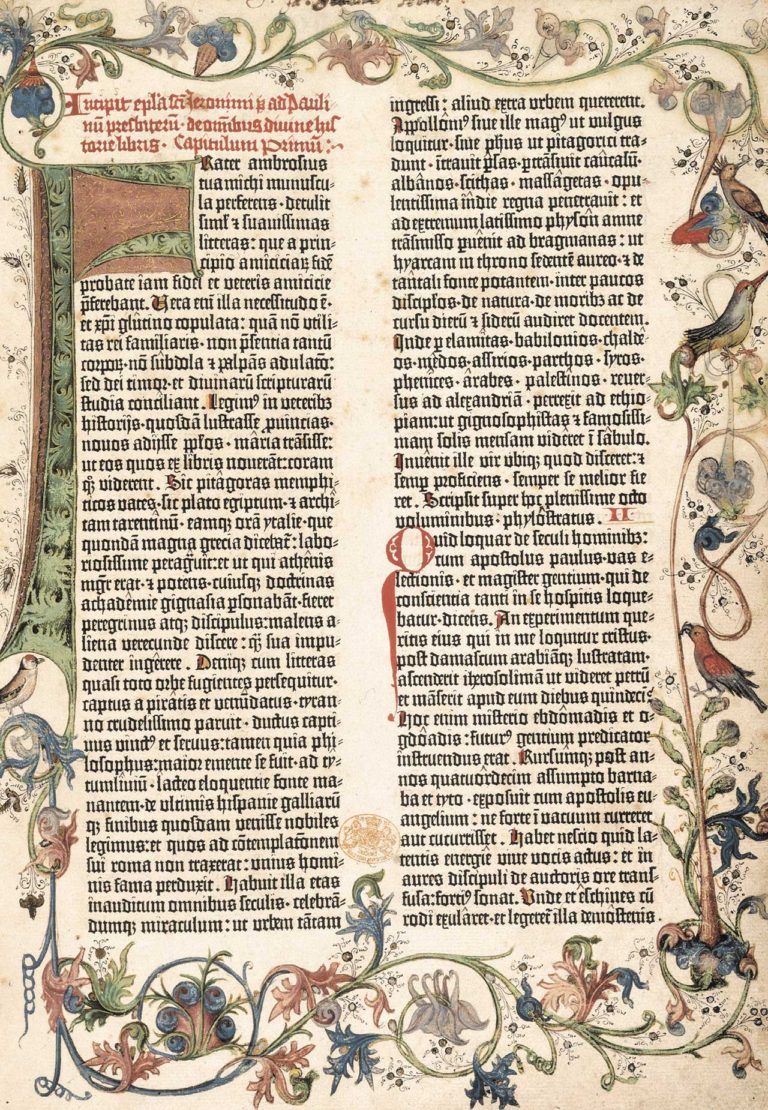 Incipit epl'a sc̄i Jeronimi p̄ ad Pauli-
nū presbiterū · de omībus diuine his
torie libris · Capitulum Primū :·
Frater ambrosius
tua michi munuscu-
la perferens · detulit
simł et suauissimas
litteras : que a prin-
cipio amiciciaꝝ fidē
probate iam fidei et veteris amicicie
p̄ferebant . Vera enī illa necessitudo ē ·
et xp̄i glutino copulata : quā nō vtili-
tas rei familiaris · non p̄sentia tantū
corpoꝝ · nō subdola et palpās adulaco :
sed dei timor · et diuinarū scripturarū
studia conciliant . Legimꝰ in veteribꝫ
historijs · quosdā lustrasse p̱uincias ·
nouos adijsse pp̄los · maria trāsisse :
ut eos quos ex libris nouerāt : coram
qꝫ viderent . Sic pitagoras memphi-
ticos vates · sic plato egiptum · et archi-
tam tarentinū · eamqꝫ orā ytalie · que
quondā magna grecia dicebat̄ : labo-
riosissime peragͥuit : et ut qui athenis
mgr̄ erat · et potens · cuiusqꝫ doctrinas
achademie gignasia p̱sonabāt · fieret
peregrinus atqꝫ discipulus : malens a-
liena verecunde discere : qꝫ sua impu-
denter ingerere . Deniqꝫ cum litteras
quasi toto orbe fugientes persequitur ·
captus a piratis et venūdatus · tyran-
no crudelissimo paruit · ductus capti-
uus vinctꝰ et seruus : tamen quia phi-
losophus : maior emente se fuit · ad ty-
tumliuiū · lacteo eloquentie fonte ma-
nantem · de vltimis hispanie galliarū
qꝫ finibus quosdam venisse nobiles
legimus : et quos ad cōtemplatōnem
sui roma non traxerat : vnius homi-
nis fama perduxit . Habuit illa etas
inauditum omnibus seculis · celebrā-
dumqꝫ miraculum : ut vrbem tātam
ingressi : aliud extra vrbem quererent .
Appolloniꝰ siue ille magꝰ ut vulgus
loquitur · siue ph̄us ut pitagorici tra-
dunt · ītrauit p̱sas · p̱trāsiuit caucasū ·
albanos · scithas · massagetas · opu-
lentissima indie regna penetrauit : et
ad extremum latissimo physon amne
trāsmisso p̱uēit ad bragmanas : ut
hyarcam in throno sedentē aureo · et de
tantali fonte potantem · inter paucos
discip̄los · de natura · de moribꝫ ac de
cursu dierū et siderū audiret docentem .
Inde p̱ elamitas · babilonios · chalde-
os · medos · assirios · parthos · syros ·
phenices · arabes · palestinos · reuer-
sus ad alexandriā · perrexit ad ethio-
piam : ut gignosophistas et famosissi-
mam solis mensam videret ī sabulo .
Inuēit ille vir vbiqꝫ quod disceret : et
semp̱ proficiens · semper se melior fie
ret . Scripsit super hoc plenissime octo
voluminibus · phylostratus . II
Quid loquar de seculi hominibꝫ :
cum apostolus paulus · vas e-
lectionis · et magister gentium · qui de
conscientia tanti in se hospitis loque-
batur · dicens . An experimentum que-
ritis eius qui in me loquitur cristus ·
post damascum arabiāqꝫ lustratam ·
ascenderit iherosolimā ut videret petrū
et māserit apud eum diebus quindecī .
Hoc enim misterio ebdomadis et o-
gdoadis : futurꝰ gentium predicator
instruendus erat . Rursumqꝫ post an-
nos quatuordecim assumpto barna-
ba et tyto · exposuit cum apostolis eu-
angelium : ne forte ī vacuum curreret
aut cucurrisset . Habet nescio quid la-
tentis energie viue vocis actus : et in
aures discipuli de auctoris ore trans-
fusa : fortiꝰ sonat . Vnde et eschines cū
rodi exularet · et legeret̄ illa demostenis .